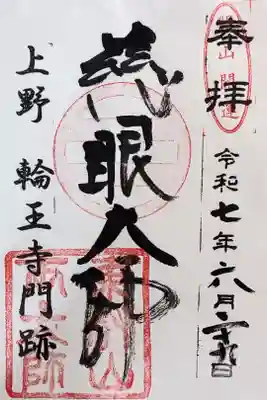 奉拝
令和七年六月二十九日
慈眼大師
上野 輪王寺門跡